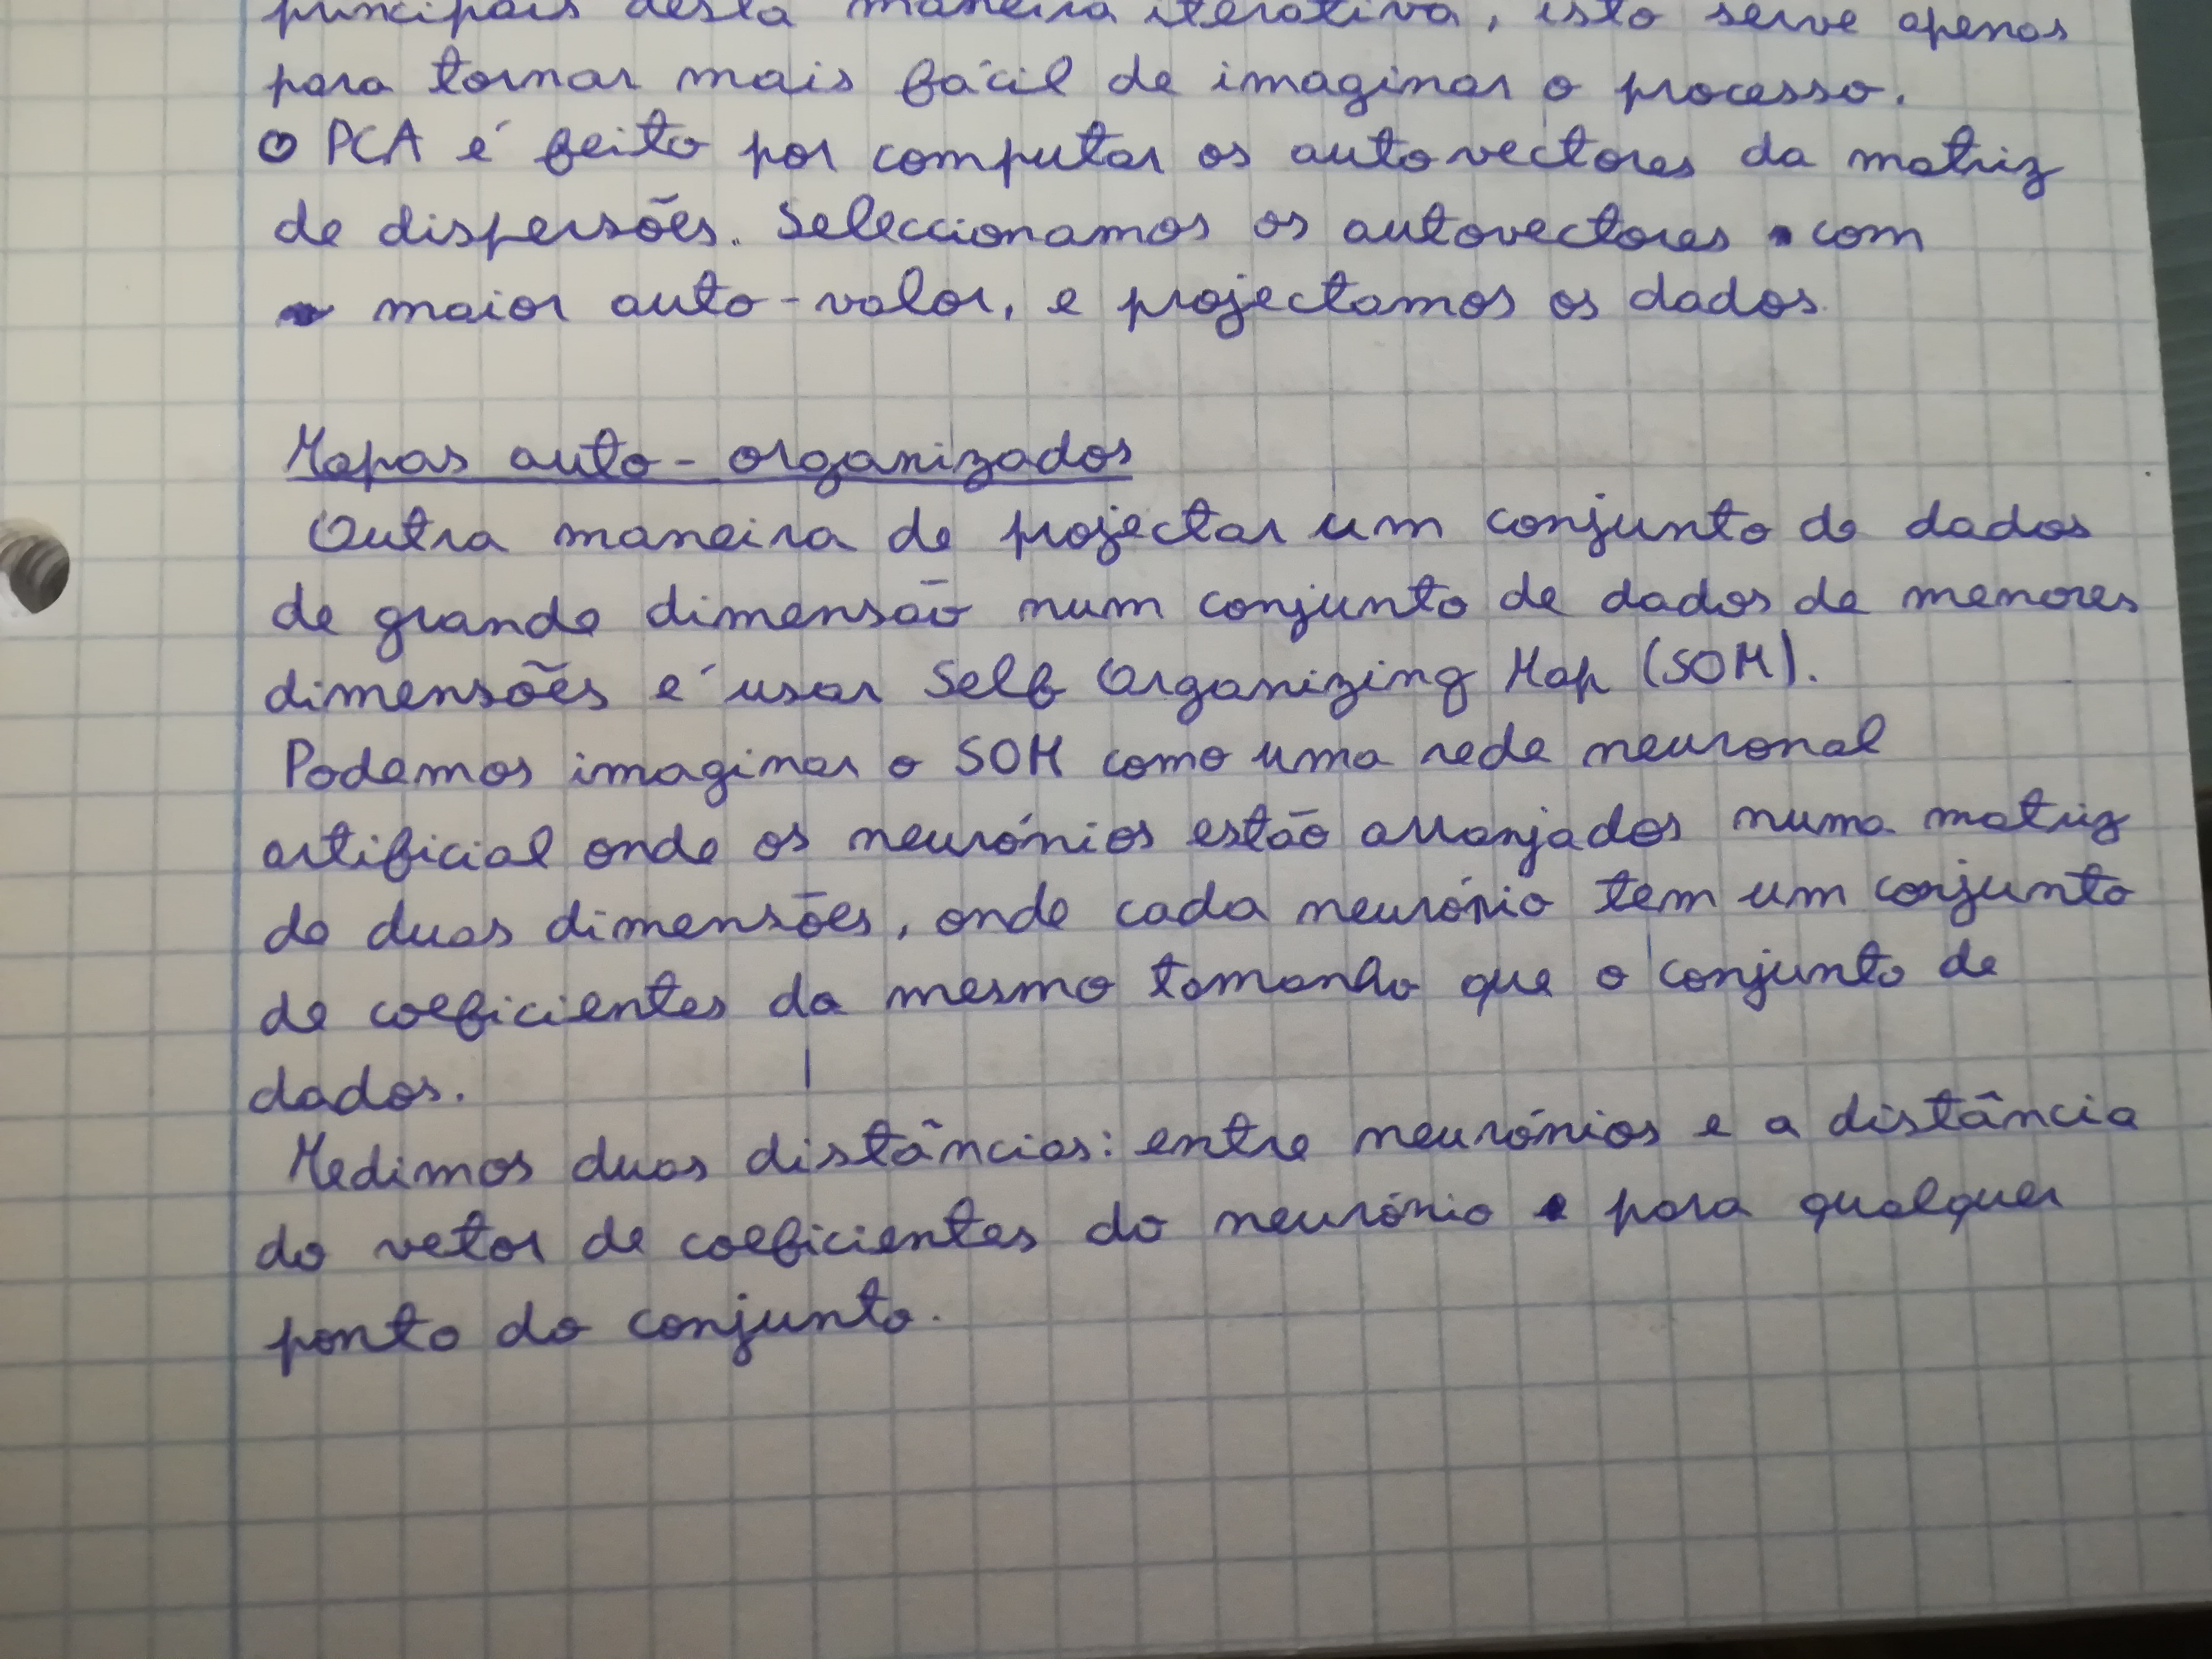 principais desta maneira iterativa, isto serve apenas
para tornar mais fácil de imaginar o processo.
O PCA é feito por computar os autovectores da matriz
de dispersões. Seleccionamos os autovectores com
maior auto-valor, e projectamos os dados.
Mapas auto-organizados
Outra maneira de projectar um conjunto de dados
de grande dimensão num conjunto de dados de menores
dimensões é usar Self Organizing Map (SOM).
Podemos imaginar o SOM como uma rede neuronal
artificial onde os neurónios estão arranjados numa matriz
de duas dimensões, onde cada neurónio tem um conjunto
de coeficientes da mesmo tamanho que o conjunto de
dados.
Medimos duas distâncias: entre neurónios e a distância
do vetor de coeficientes do neurónio para qualquer
ponto do conjunto.